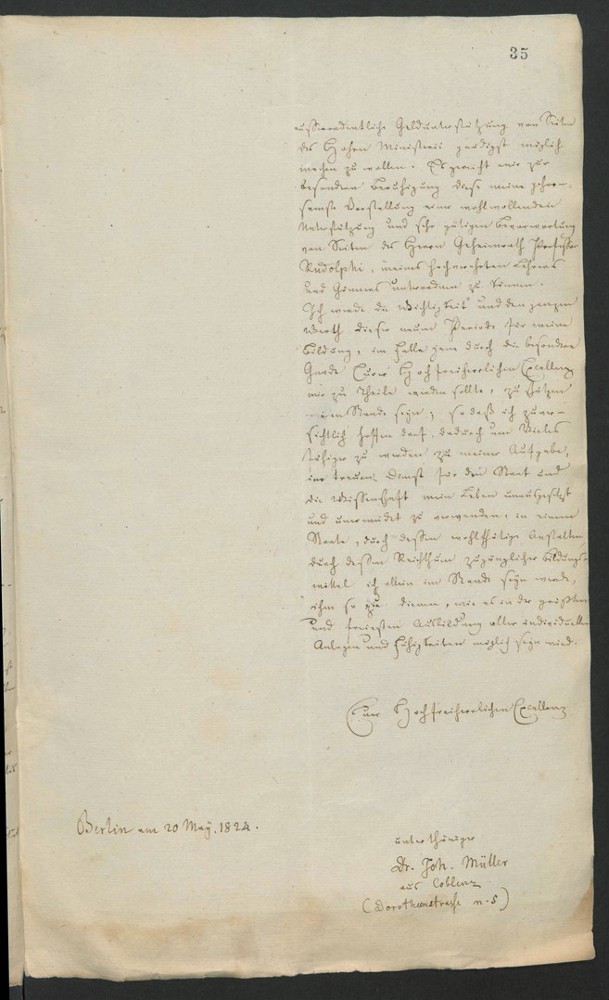 35
ausserordentliche Geldunterstützung von Seiten
des Hohen Ministerii gnädigst möglich
machen zu wollen. Es gereicht mir zur
besondren Beruhigung dass meine gehor-
samste Vorstellung einer wohlwollenden
Unterstützung und sehr gütigen Bevorwortung
von Seiten des Herrn Geheimrath Professor
Rudolphi, meines hochverehrten Lehrers
und Gönners
Ich werde die Wichtigkeit und den ganzen
Werth dieser neuen Periode für meine
Bildung, im Falle jene durch die besondere
Gnade Euer Hochfreiherrlichen Excellenz
mir zu Theile werden sollte, zu schätzen
im Stande seyn; so daß ich zuver-
sichtlich hoffen darf, dadurch um Vieles
fähiger zu werden zu meiner Aufgabe,
im treuen Dienst für den Staat und
die Wissenschaft mein Leben unausgesetzt
und unermüdet zu verwenden, in einem
Staate, durch dessen wohlthätige Anstalten
durch dessen Reichthum zugänglicher Bildungs-
mittel ich allein im Stande seyn werde,
ihm so zu dienen, wie es in der größten
und freiesten Ausbildung aller individuellen
Anlagen und Fähigkeiten möglich seyn wird.
Euer Hochfreiherrlichen Excellenz
Berlin am 20 May. 1824.
unterthäniger
Dr. Joh. Müller
aus Coblenz
(Dorotheenstrasse n. 5)